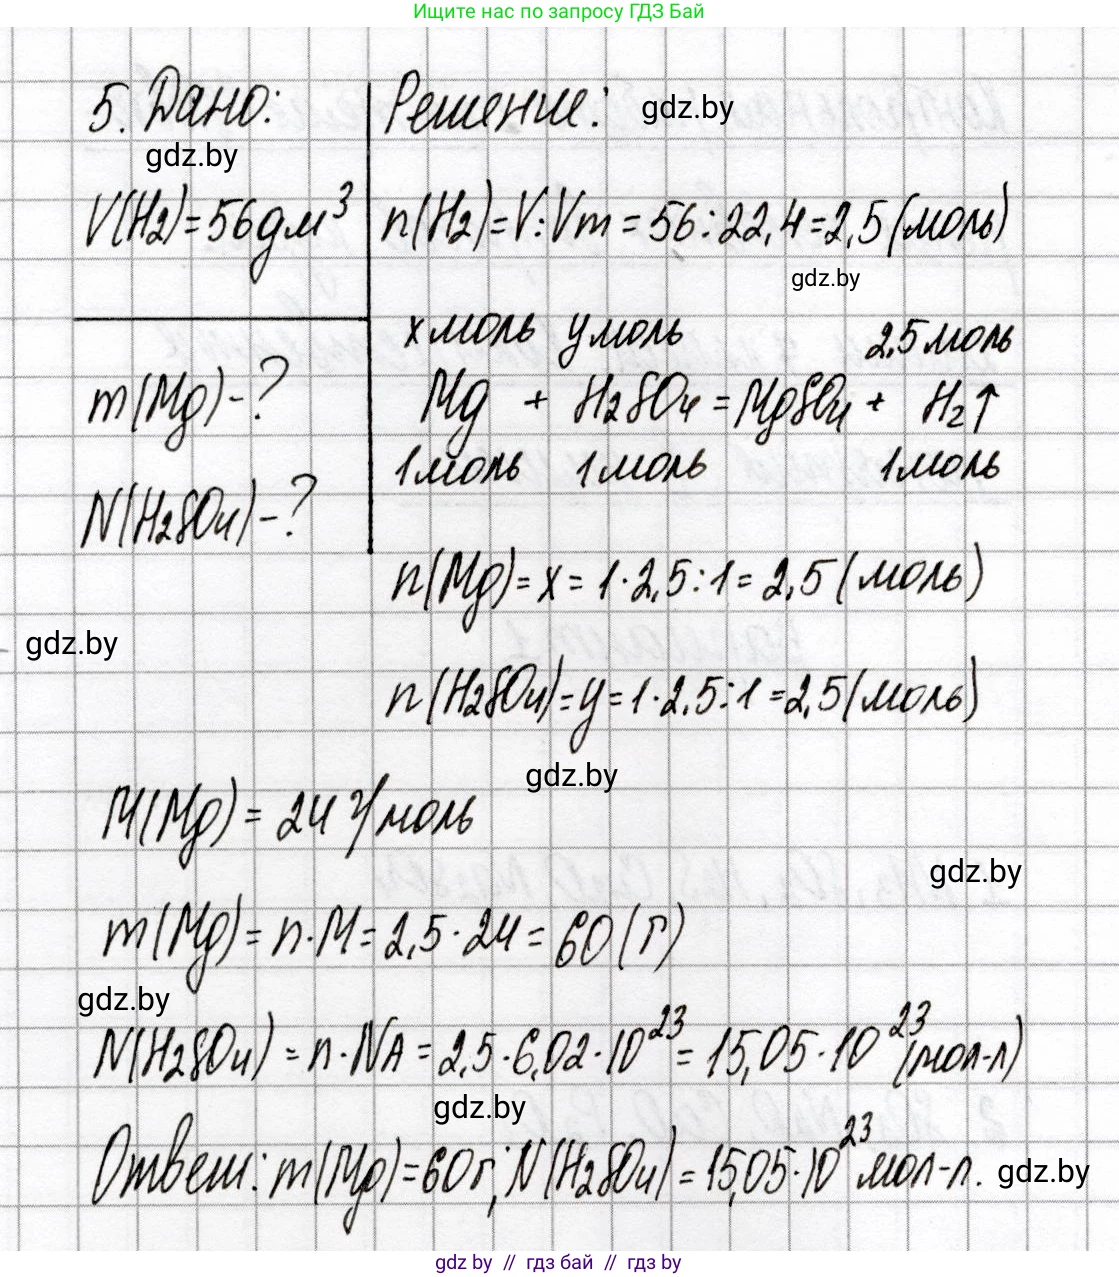 Ищите нас по запросу ГДЗ Бай
5. Дано:
Решение:
gdz.by
gdz.by
V(H₂)=56дм³
n(H₂)=V:Vm=56:22,4=2,5(моль)
gdz.by
x моль y моль 2,5 моль
m(Mg)-?
Mg + H₂SO₄ = MgSO₄ + H₂↑
1 моль 1 моль 1 моль
N(H₂SO₄)-?
n(Mg)=x=1·2,5:1=2,5(моль)
gdz.by
n(H₂SO₄)=y=1·2,5:1=2,5(моль)
gdz.by
M(Mg)=24 г/моль
gdz.by
m(Mg)=n·M=2,5·24=60(г)
gdz.by
N(H₂SO₄)=n·NA=2,5·6,02·10²³=15,05·10²³(мол-л)
gdz.by
Ответ: m(Mg)=60г; N(H₂SO₄)=15,05·10²³ мол-л.
gdz.by
gdz.by // гдз бай // гдз by